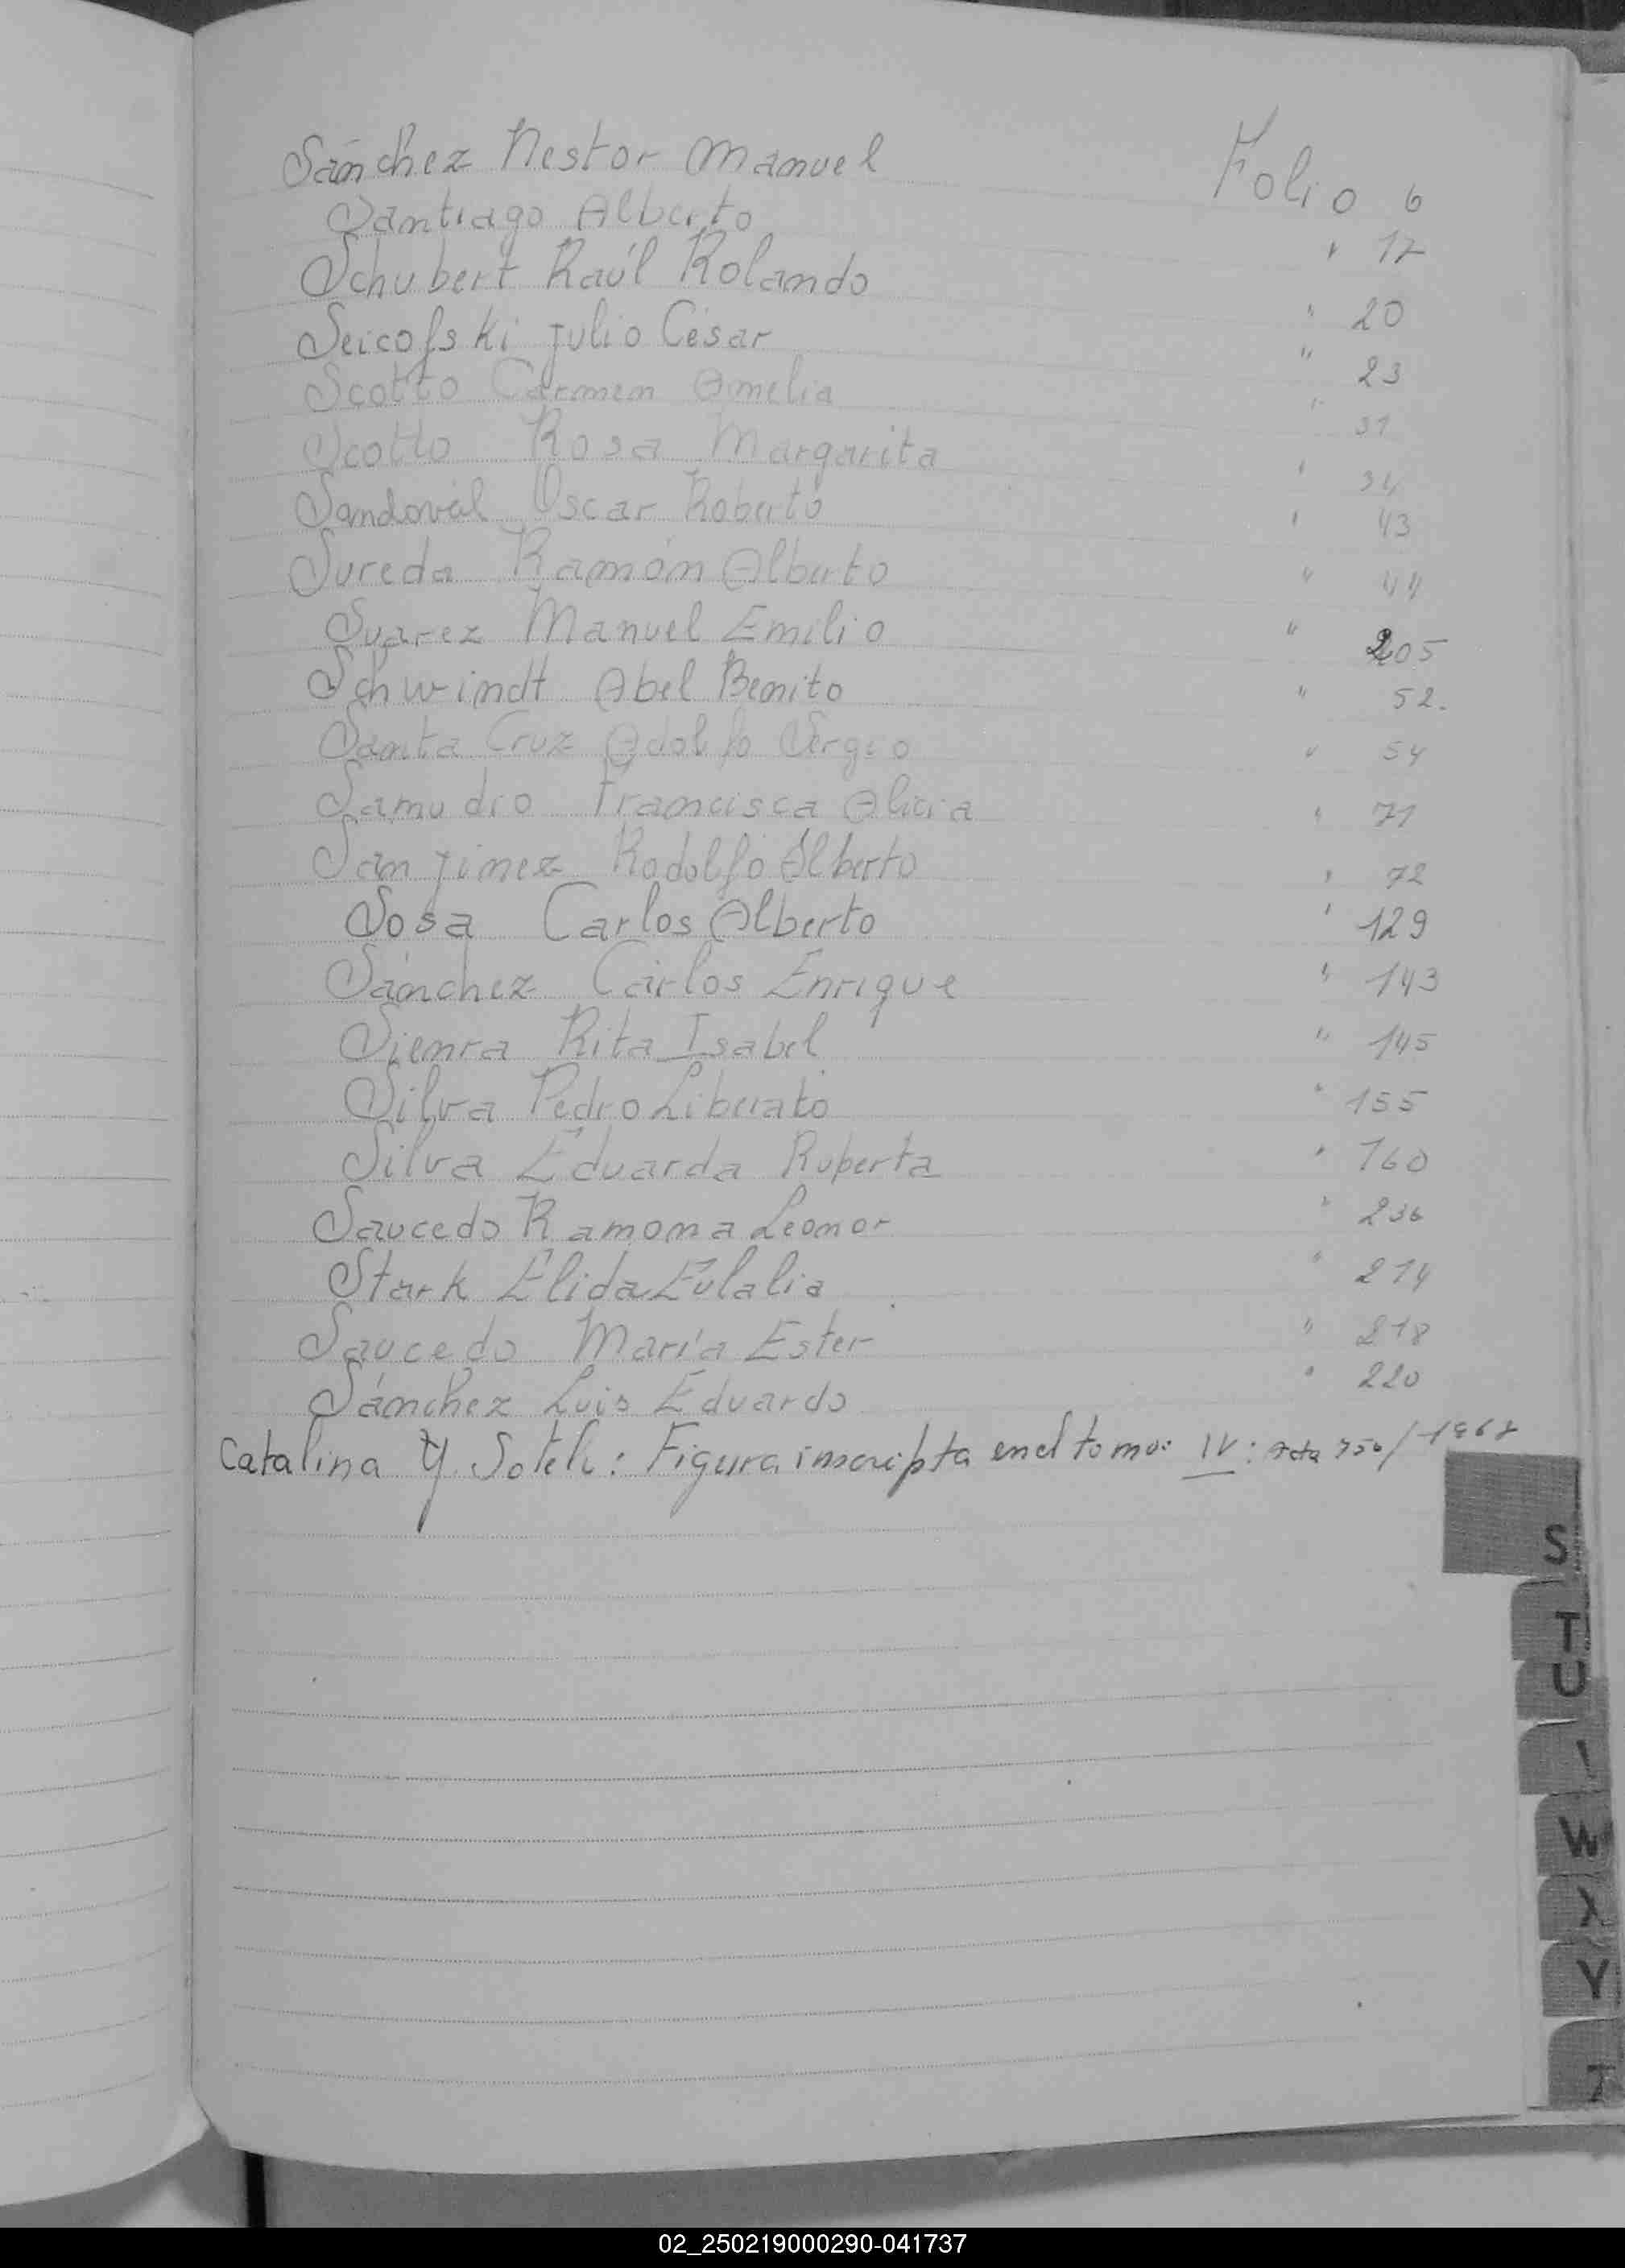 Sánchez Nestor Manuel Folio 6
Santiago Alberto " 17
Schubert Raúl Rolando " 20
Seicofski Julio César " 23
Scotto Carmen Amelia " 31
Scotto Rosa Margarita " 34
Sandoval Oscar Roberto " 43
Sureda Ramón Alberto " 44
Suarez Manuel Emilio " 205
Schwindt Abel Benito " 52.
Santa Cruz Adolfo Sergio " 54
Samudio Francisca Alicia " 71
San Jimez Rodolfo Alberto " 72
Sosa Carlos Alberto " 129
Sánchez Carlos Enrique " 143
Sienra Rita Isabel " 145
Silva Pedro Liberato " 155
Silva Eduarda Ruperta " 160
Saucedo Ramona Leonor " 236
Stark Elida Eulalia " 214
Saucedo María Ester " 218
Sánchez Luis Eduardo " 220
Catalina Y. Sotelo: Figura inscripta en el tomo: IV: acta
S
T
U
W
X
Y
02_250219000290-041737